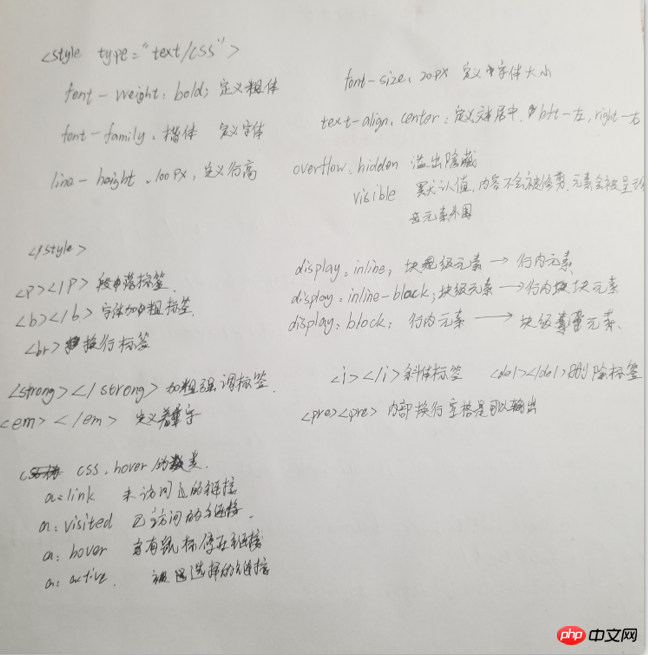 <style type="text/css">
font-weight: bold; 定义粗体
font-family: 楷体 定义字体
line-height: 100px, 定义行高
</style>
<p></p> 段落标签
<b></b> 字体加粗标签
<br> 换行标签
<strong></strong> 加粗强调标签
<em></em> 定义着重字
css: hover 伪类
a:link 未访问过的链接
a:visited 已访问的链接
a: hover 当有鼠标停在链接
a: active. 被选择的链接
font-size: 20px 定义字体大小
text-align: center: 定义文本居中, left-左, right-右
overflow: hidden 溢出隐藏
visible 默认值, 内容不会被修剪, 元素会被呈现
元素外围
display: inline; 块级元素 → 行内元素
display: inline-block; 块级元素 → 行内块元素
display: block; 行内元素 → 块级元素
<i></i> 斜体标签 <del></del> 删除标签
<pre><pre> 内部换行空格是可以输出
php 中文网